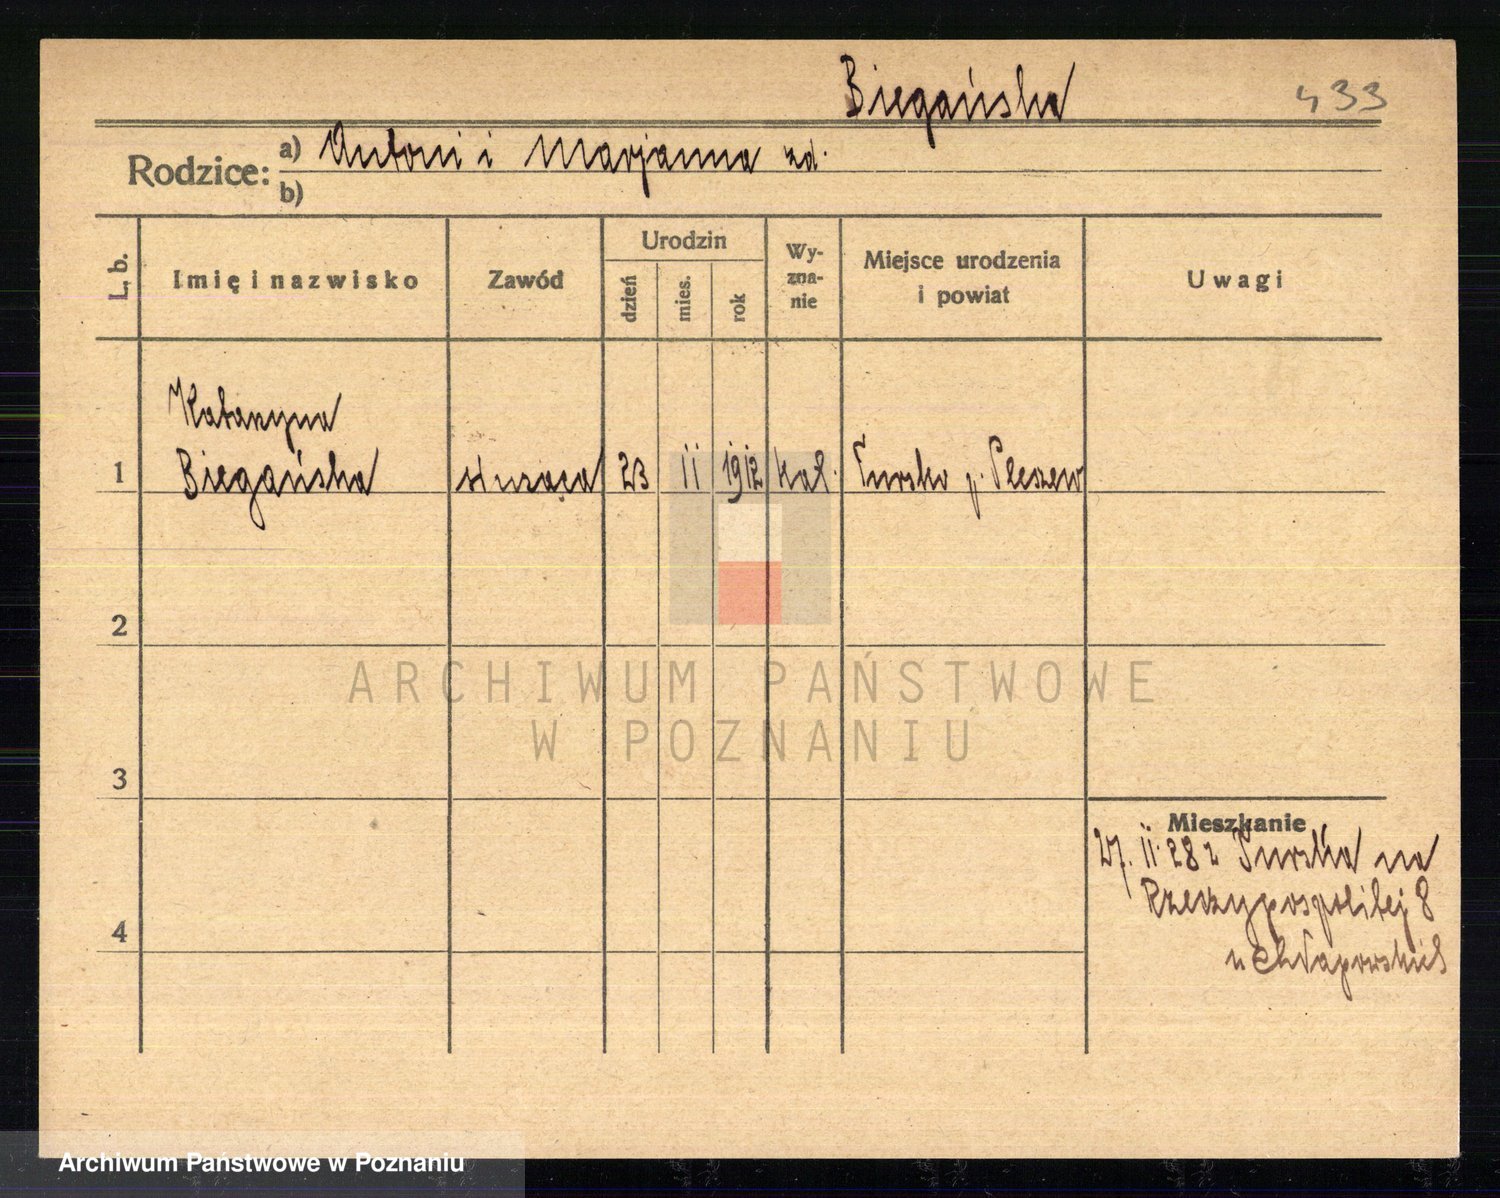 Biegańska 433
Rodzice: a) Antoni i Marjanna zd.
b)
L. b. Imię i nazwisko Zawód Urodzin dzień mies. rok Wy-zna-nie Miejsce urodzenia i powiat Uwagi
Katarzyna
1 Biegańska służąca 23 II 1912 kat. Tursko p. Pleszew
2
ARCHIWUM PAŃSTWOWE
W POZNANIU
3
Mieszkanie
27. II. 28 z Turska na
Rzeczypospolitej 8
4
u Chłapowskich
Archiwum Państwowe w Poznaniu